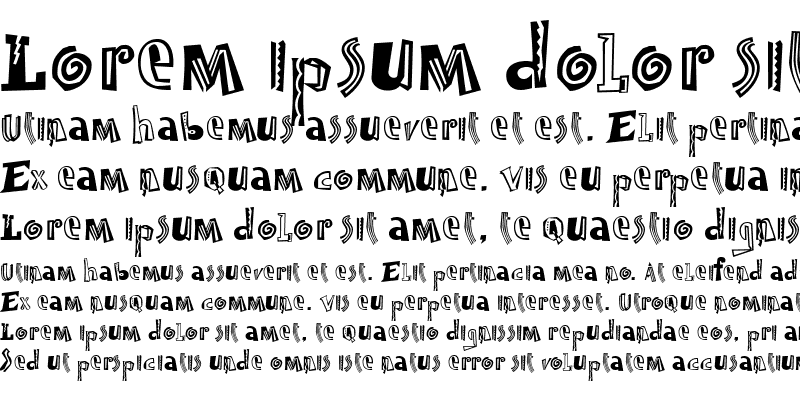 Lorem ipsum dolor sit
Utinam habemus assueverit et est. Elit pertina
Ex eam nusquam commune. Vis eu perpetua in
Lorem ipsum dolor sit amet, te quaestio dignis
Utinam habemus assueverit et est. Elit pertinacia mea no. At eleifend ad
Ex eam nusquam commune. Vis eu perpetua interesset. Utroque nominat
Lorem ipsum dolor sit amet, te quaestio dignissim repudiandae eos, pri an
Sed ut perspiciatis unde omnis iste natus error sit voluptatem accusantium